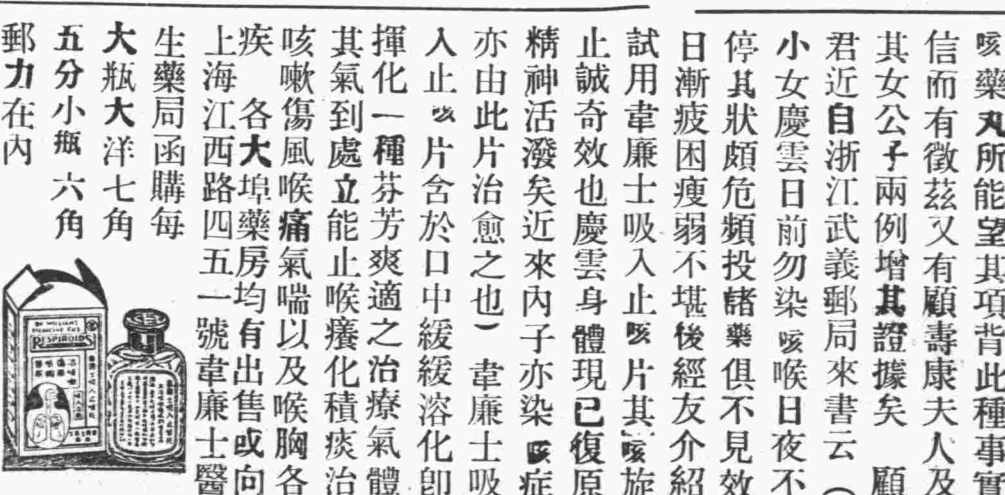 咳藥丸所能望其項背此種事實
信而有徵茲又有顧壽康夫人及
其女公子兩例增其證據矣　顧
君近自浙江武義郵局來書云（
小女慶雲日前勿染咳喉日夜不
停其狀頗危頻投諸藥俱不見效
日漸疲困瘦弱不堪後經友介紹
試用韋廉士吸入止咳片其咳旋
止誠奇效也慶雲身體現已復原
精神活潑矣近來內子亦染咳症
亦由此片治愈之也）　韋廉士吸
入止咳片含於口中緩緩溶化卽
揮化一種芬芳爽適之治療氣體
其氣到處立能止喉癢化積痰治
咳嗽傷風喉痛氣喘以及喉胸各
疾　各大埠藥房均有出售或向
上海江西路四五一號韋廉士醫
生藥局函購每
大瓶大洋七角
五分小瓶六角
郵力在內
DR WILLIAMS
MEDICINE CO'S
RESPIROIDS